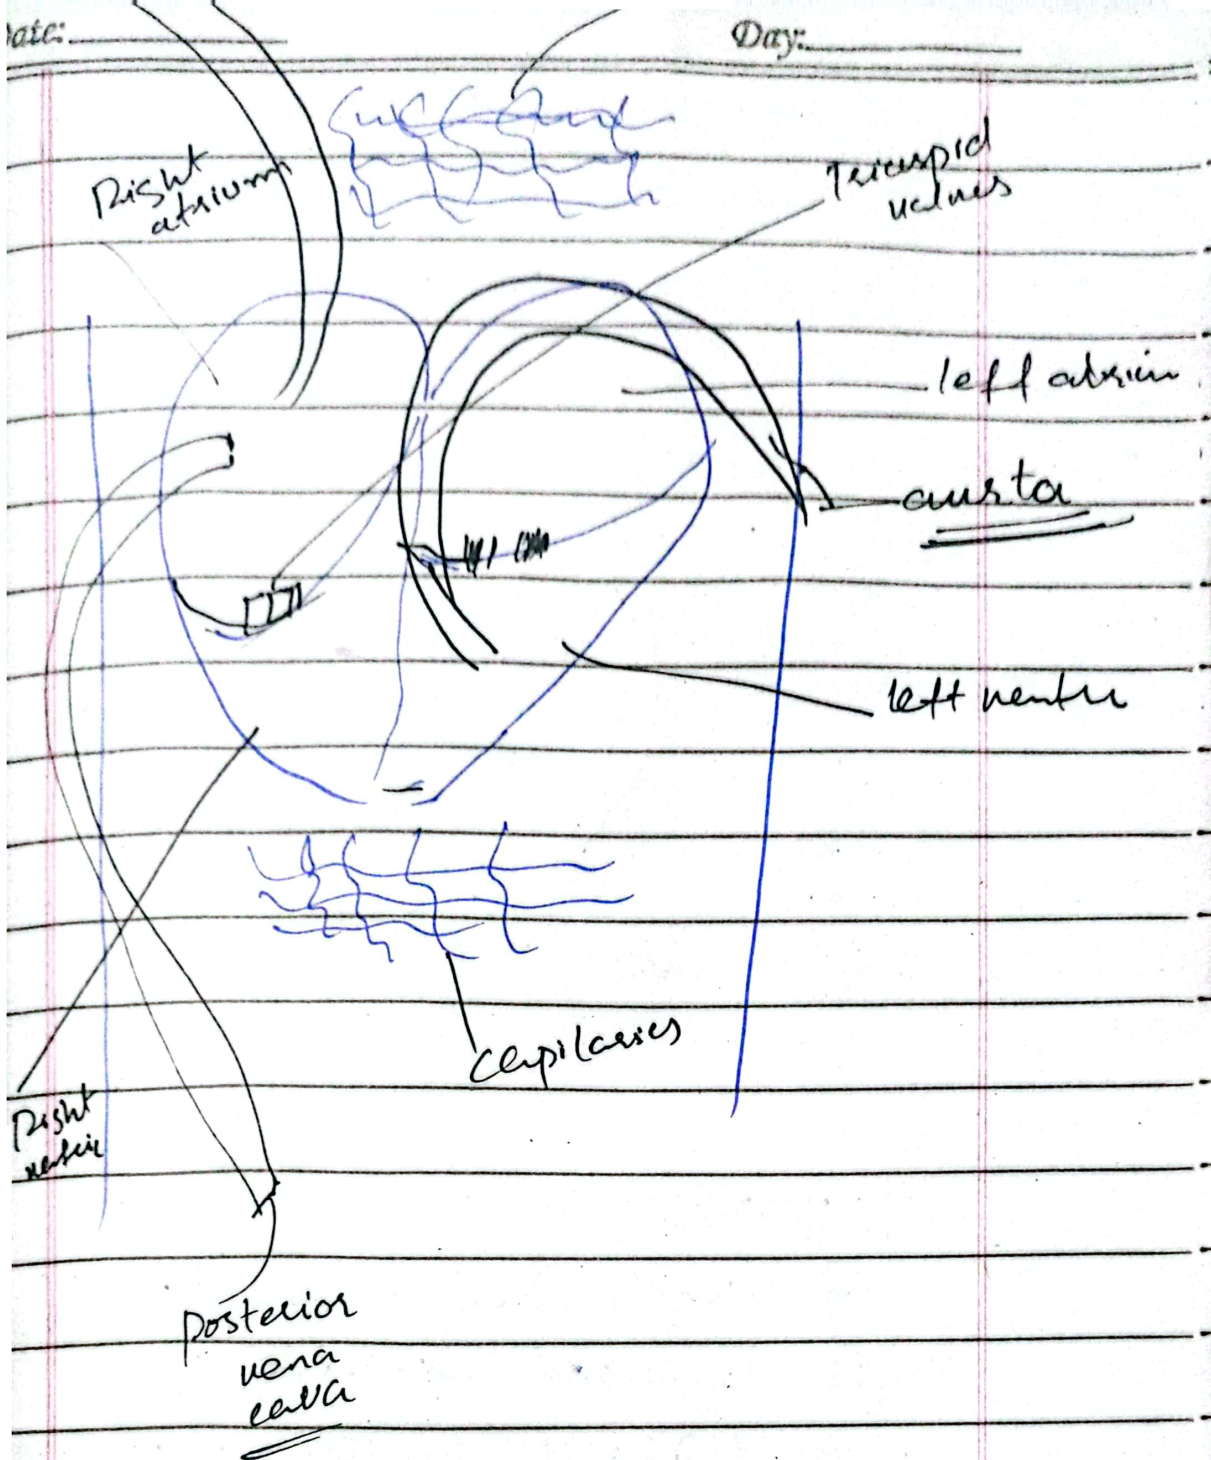 Date:
Day:
Right
atrium
Tricuspid
valves
left atrium
aurta
left ventri
Capilaries
Right
ventric
Posterior
vena
cava